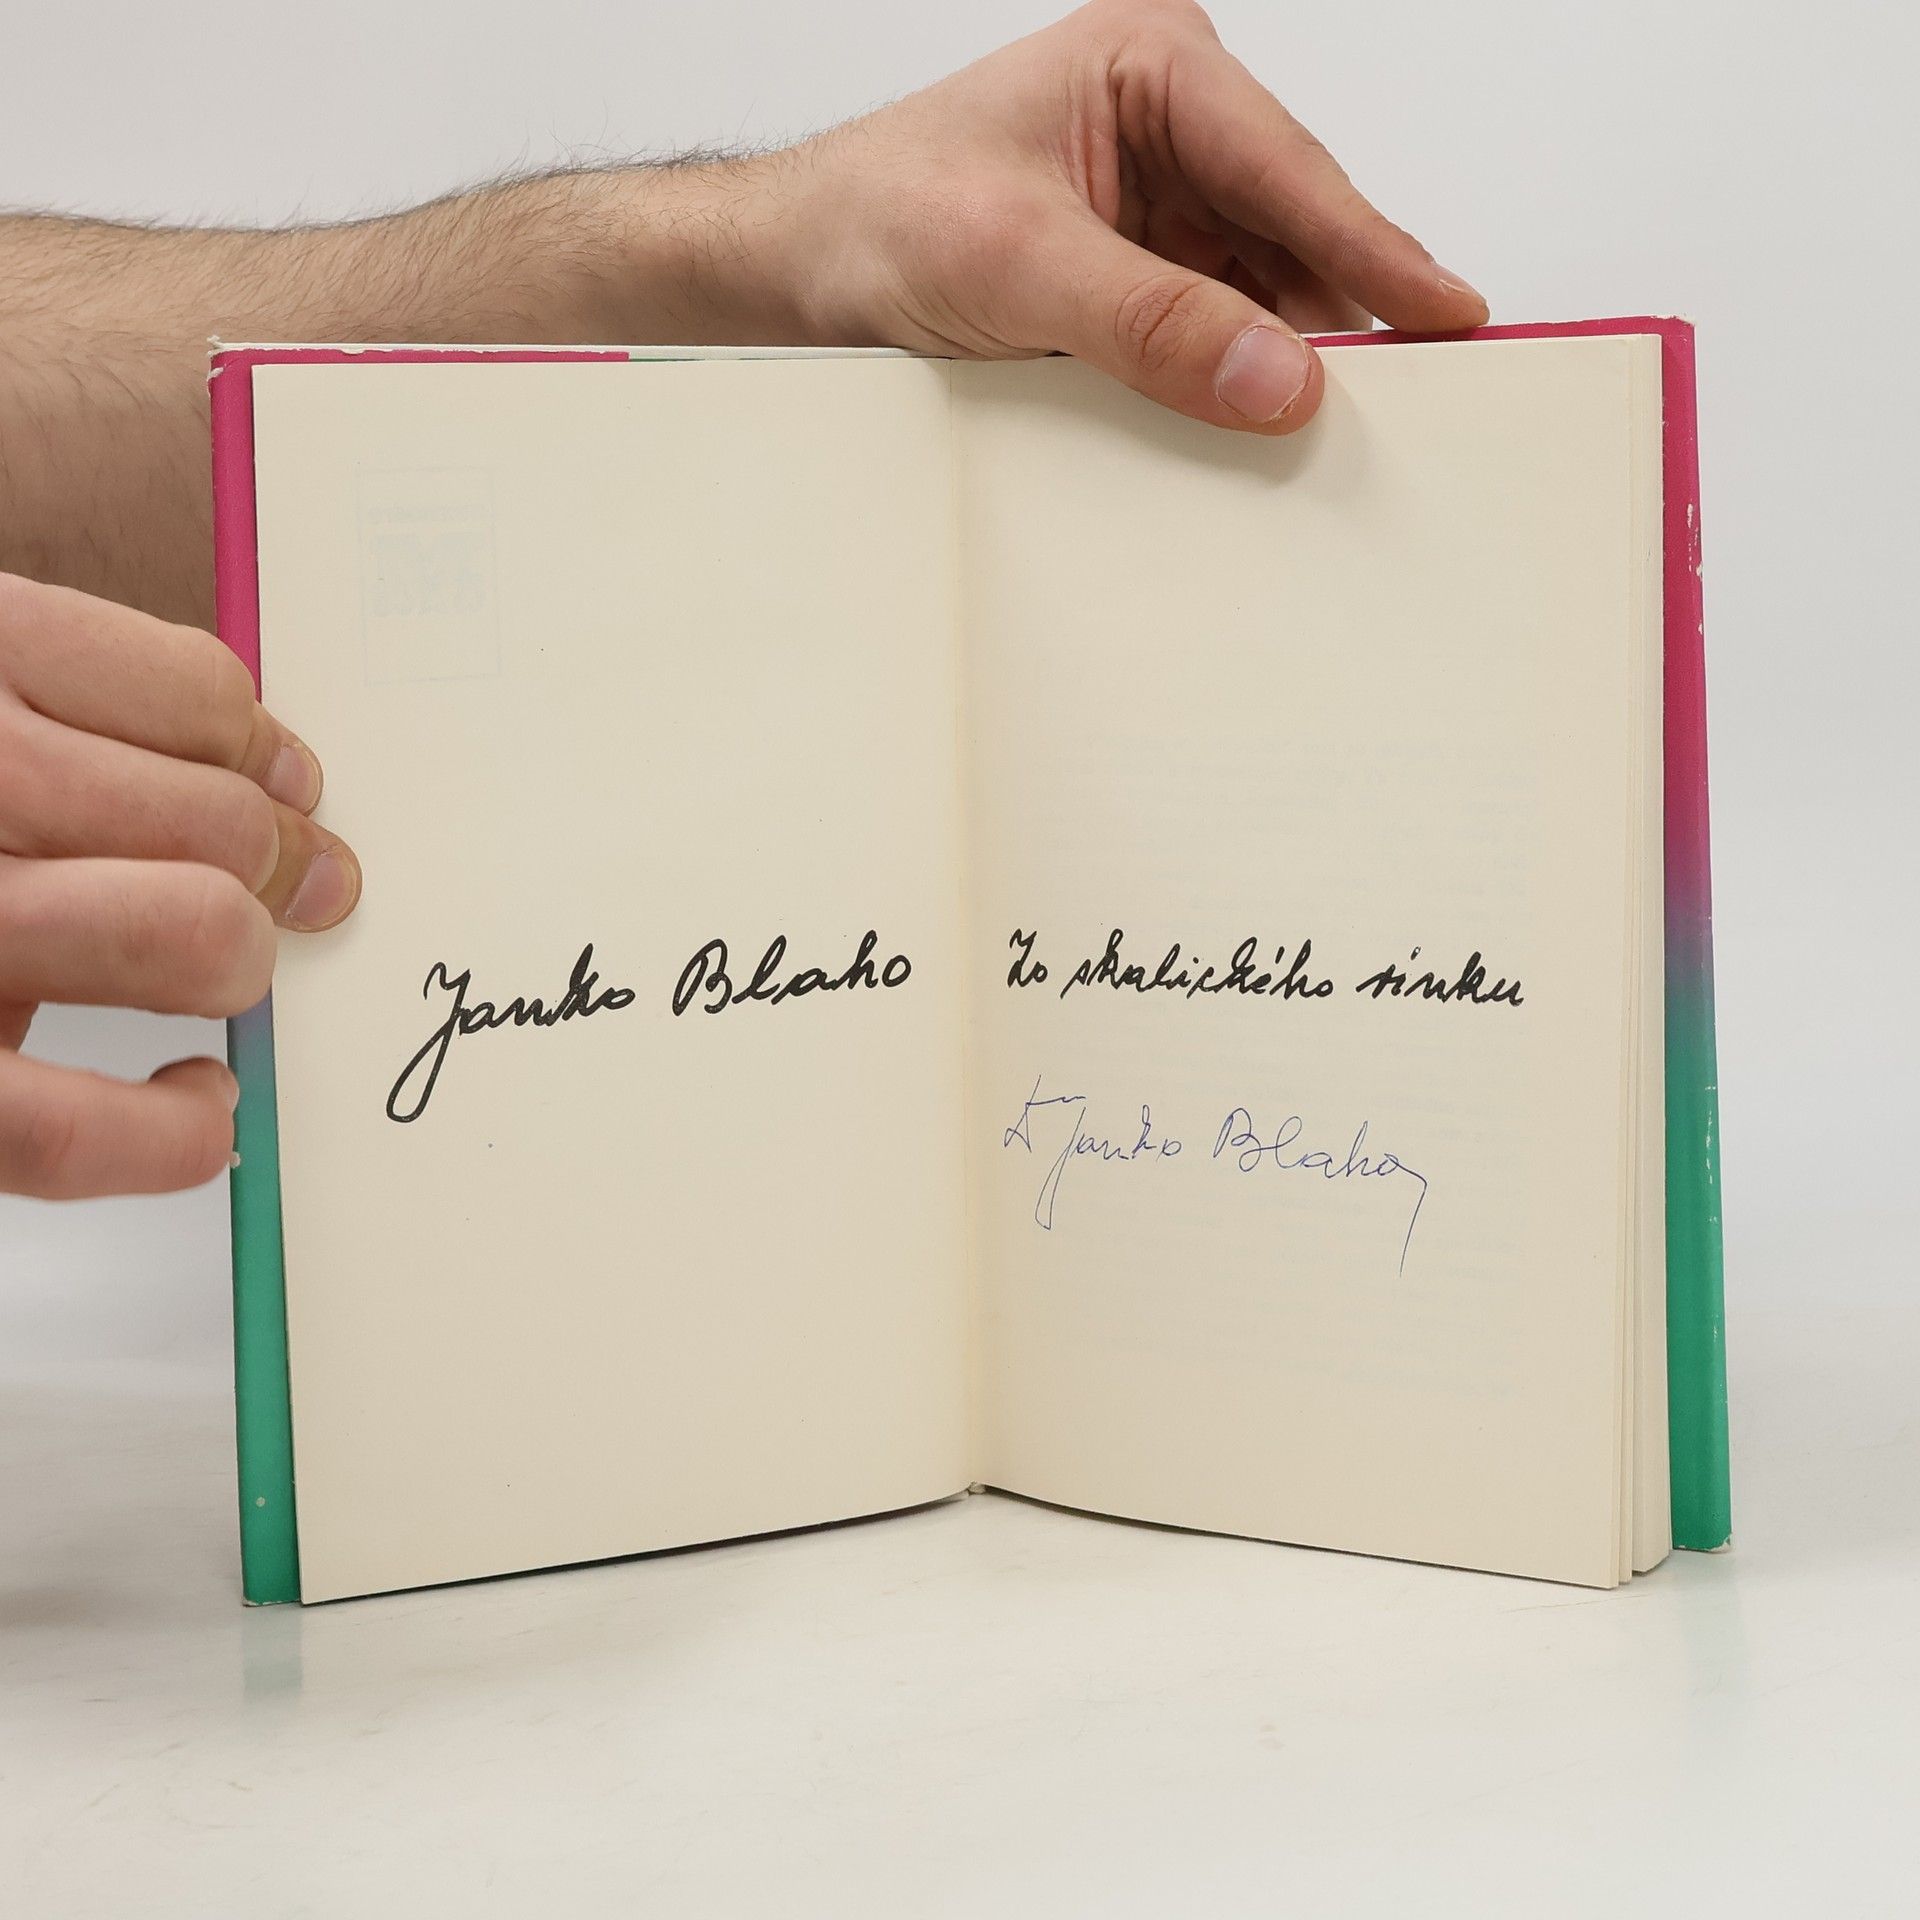 Janko Blaho
Zo skalického rínku
Janko Blaho